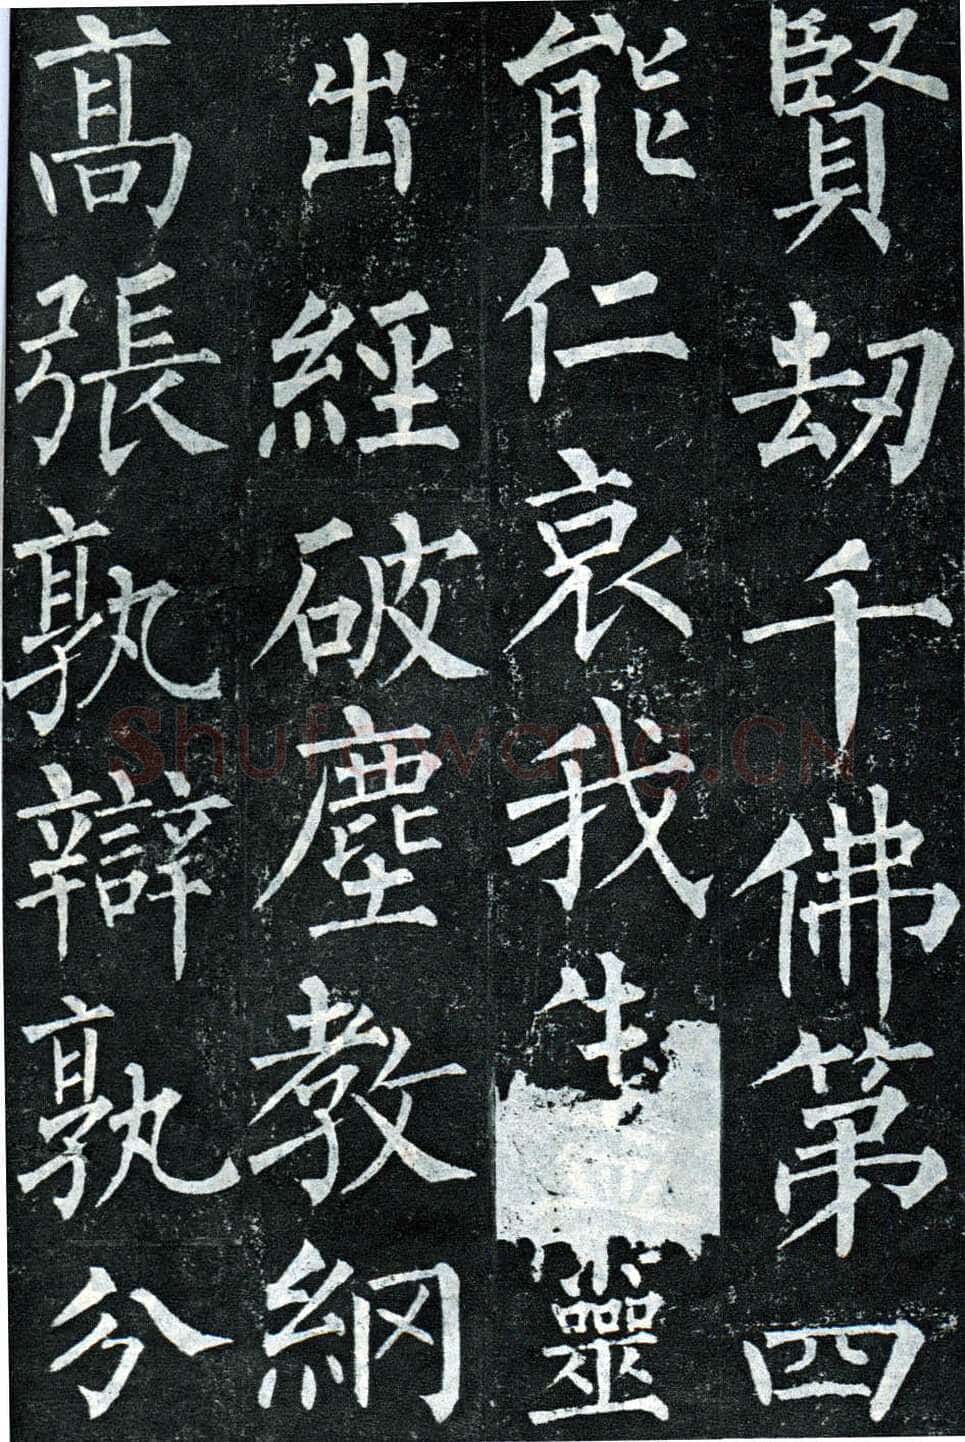 賢劫千佛第四
能仁哀我生靈
出經破塵教網
高張孰辯孰分
Shufawang.CN